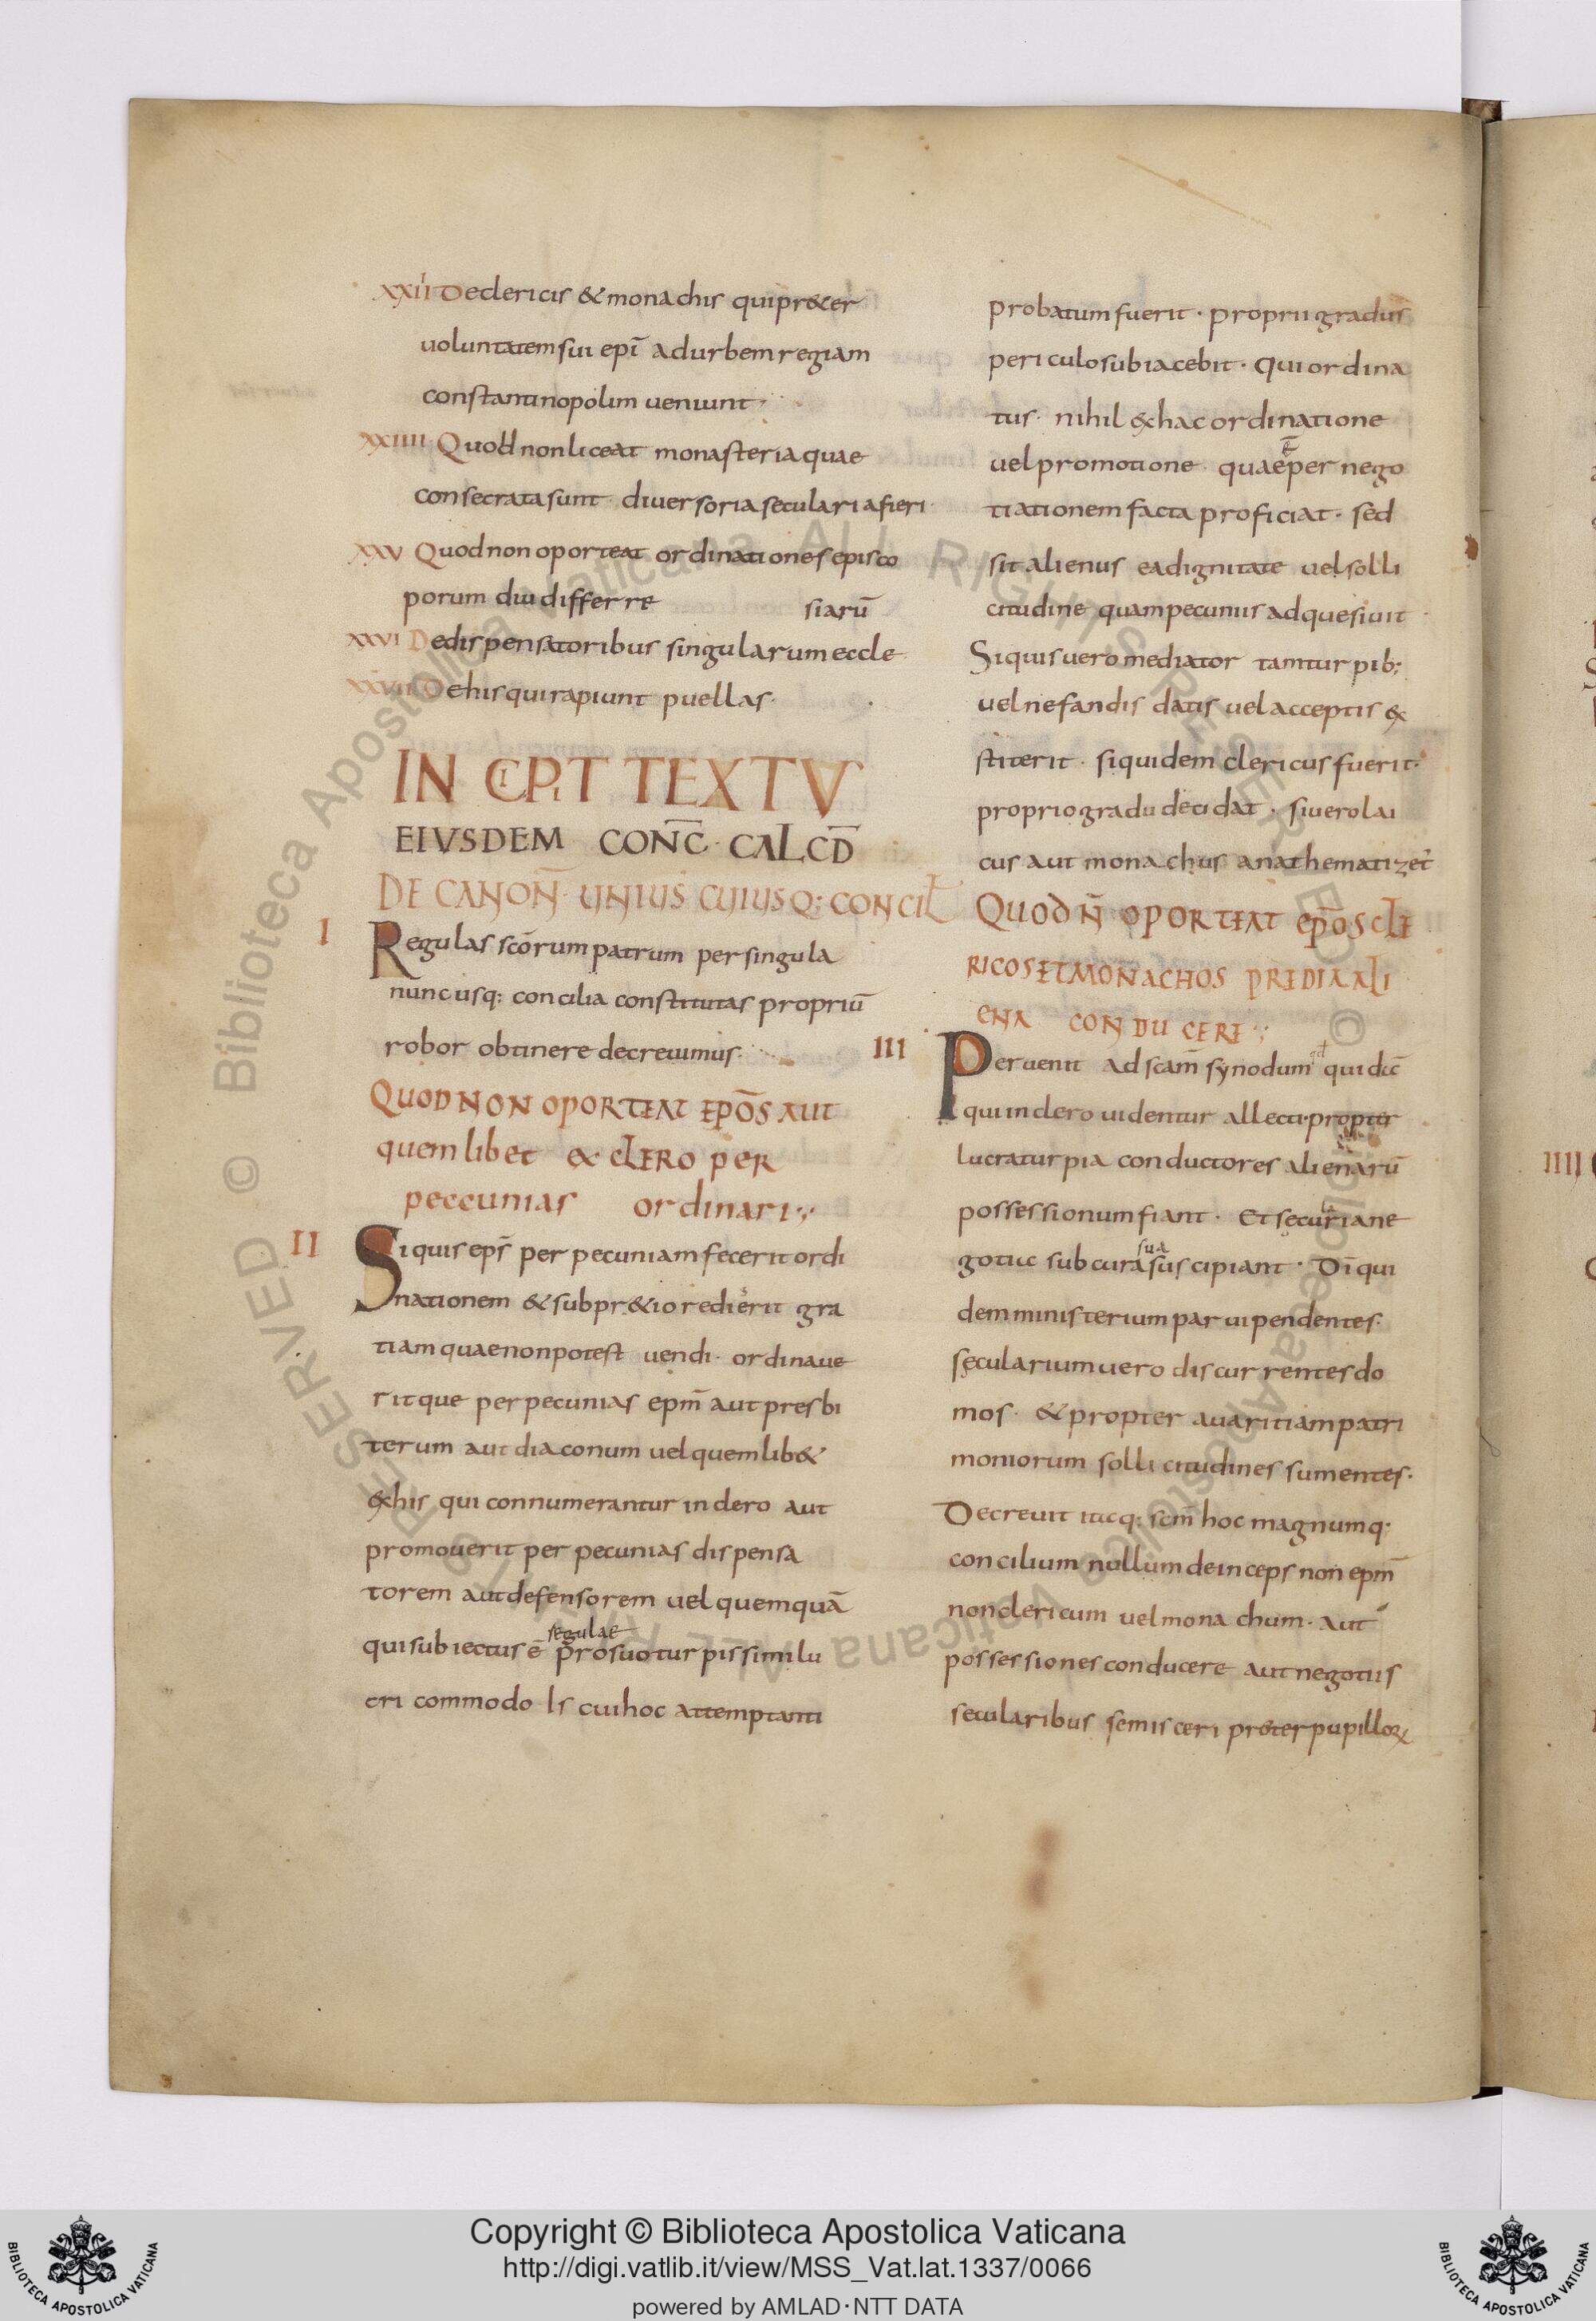 XXIII De clericis & monachis qui pr&er
uoluntatem sui epī ad urbem regiam
constantinopolim ueniunt·
XXIIII Quod non liceat monasteria quae
consecrata sunt diuersoria secularia fieri
XXV Quod non oporteat ordinationes episco
porum diu differre
siarū
XXVI De dispensatoribus singularum eccle
XXVII De his qui rapiunt puellas·
INCIPIT TEXTV
EIVSDEM CONC̄· CALCD̄
DE CANON̄· UNIUS CUIUSQ: CONCIL̄
I
Regulas scōrum patrum per singula
nunc usq: concilia constitutas propriū
robor obtinere decreuimus·
QUOD NON OPORTEAT EPŌS AUT
quemlibet ex CLERO PER
peccunias ordinari·,·
II
Si quis eps̄ per pecuniam fecerit ordi
nationem & sub pr&io redierit gra
tiam quae non potest uendi· ordinaue
ritque per pecunias epm̄ aut presbi
terum aut diaconum uel quemlib&
ex his qui connumerantur in clero aut
promouerit per pecunias dispensa
torem aut defensorem uel quemquā
regulae
qui subiectus ē pro suo turpissimi lu
cri commodo Is cui hoc attemptanti
probatum fuerit· proprii gradus
periculo subiacebit· Qui ordina
tus· nihil ex hac ordinatione
uel promotione quae per nego
tiationem facta proficiat· sed
sit alienus ea dignitate uel solli
citudine quam pecuniis adquesiuit
Si quis uero mediator tam turpib;
uel nefandis datis uel acceptis ex
stiterit· siquidem clericus fuerit·
proprio gradu decidat· si uero lai
cus aut monachus anathematizet
QUOD N̄ OPORTEAT EPŌS CLE
RICOS ET MONACHOS PREDIA ALI
ENA CONDUCERE·,·
III
Peruenit ad scam̄ synodum qd qui dic̄
qui in clero uidentur allecti· propter
lucra turpia conductores alienarū
possessionum fiant· Et secularia ne
sua
gotia sub cura suscipiant· Dī qui
dem ministerium paruipendentes·
secularium uero discurrentes do
mos· & propter auaritiam patri
moniorum sollicitudines sumentes·
Decreuit itaq: scm̄ hoc magnumq;
concilium nullum deinceps non epm̄
non clericum uel monachum· aut
possessiones conducere aut negotiis
secularibus se misceri preter pupillorum
IIII
Copyright © Biblioteca Apostolica Vaticana
http://digi.vatlib.it/view/MSS_Vat.lat.1337/0066
powered by AMLAD·NTT DATA
BIBLIOTECA APOSTOLICA VATICANA
BIBLIOTECA APOSTOLICA VATICANA